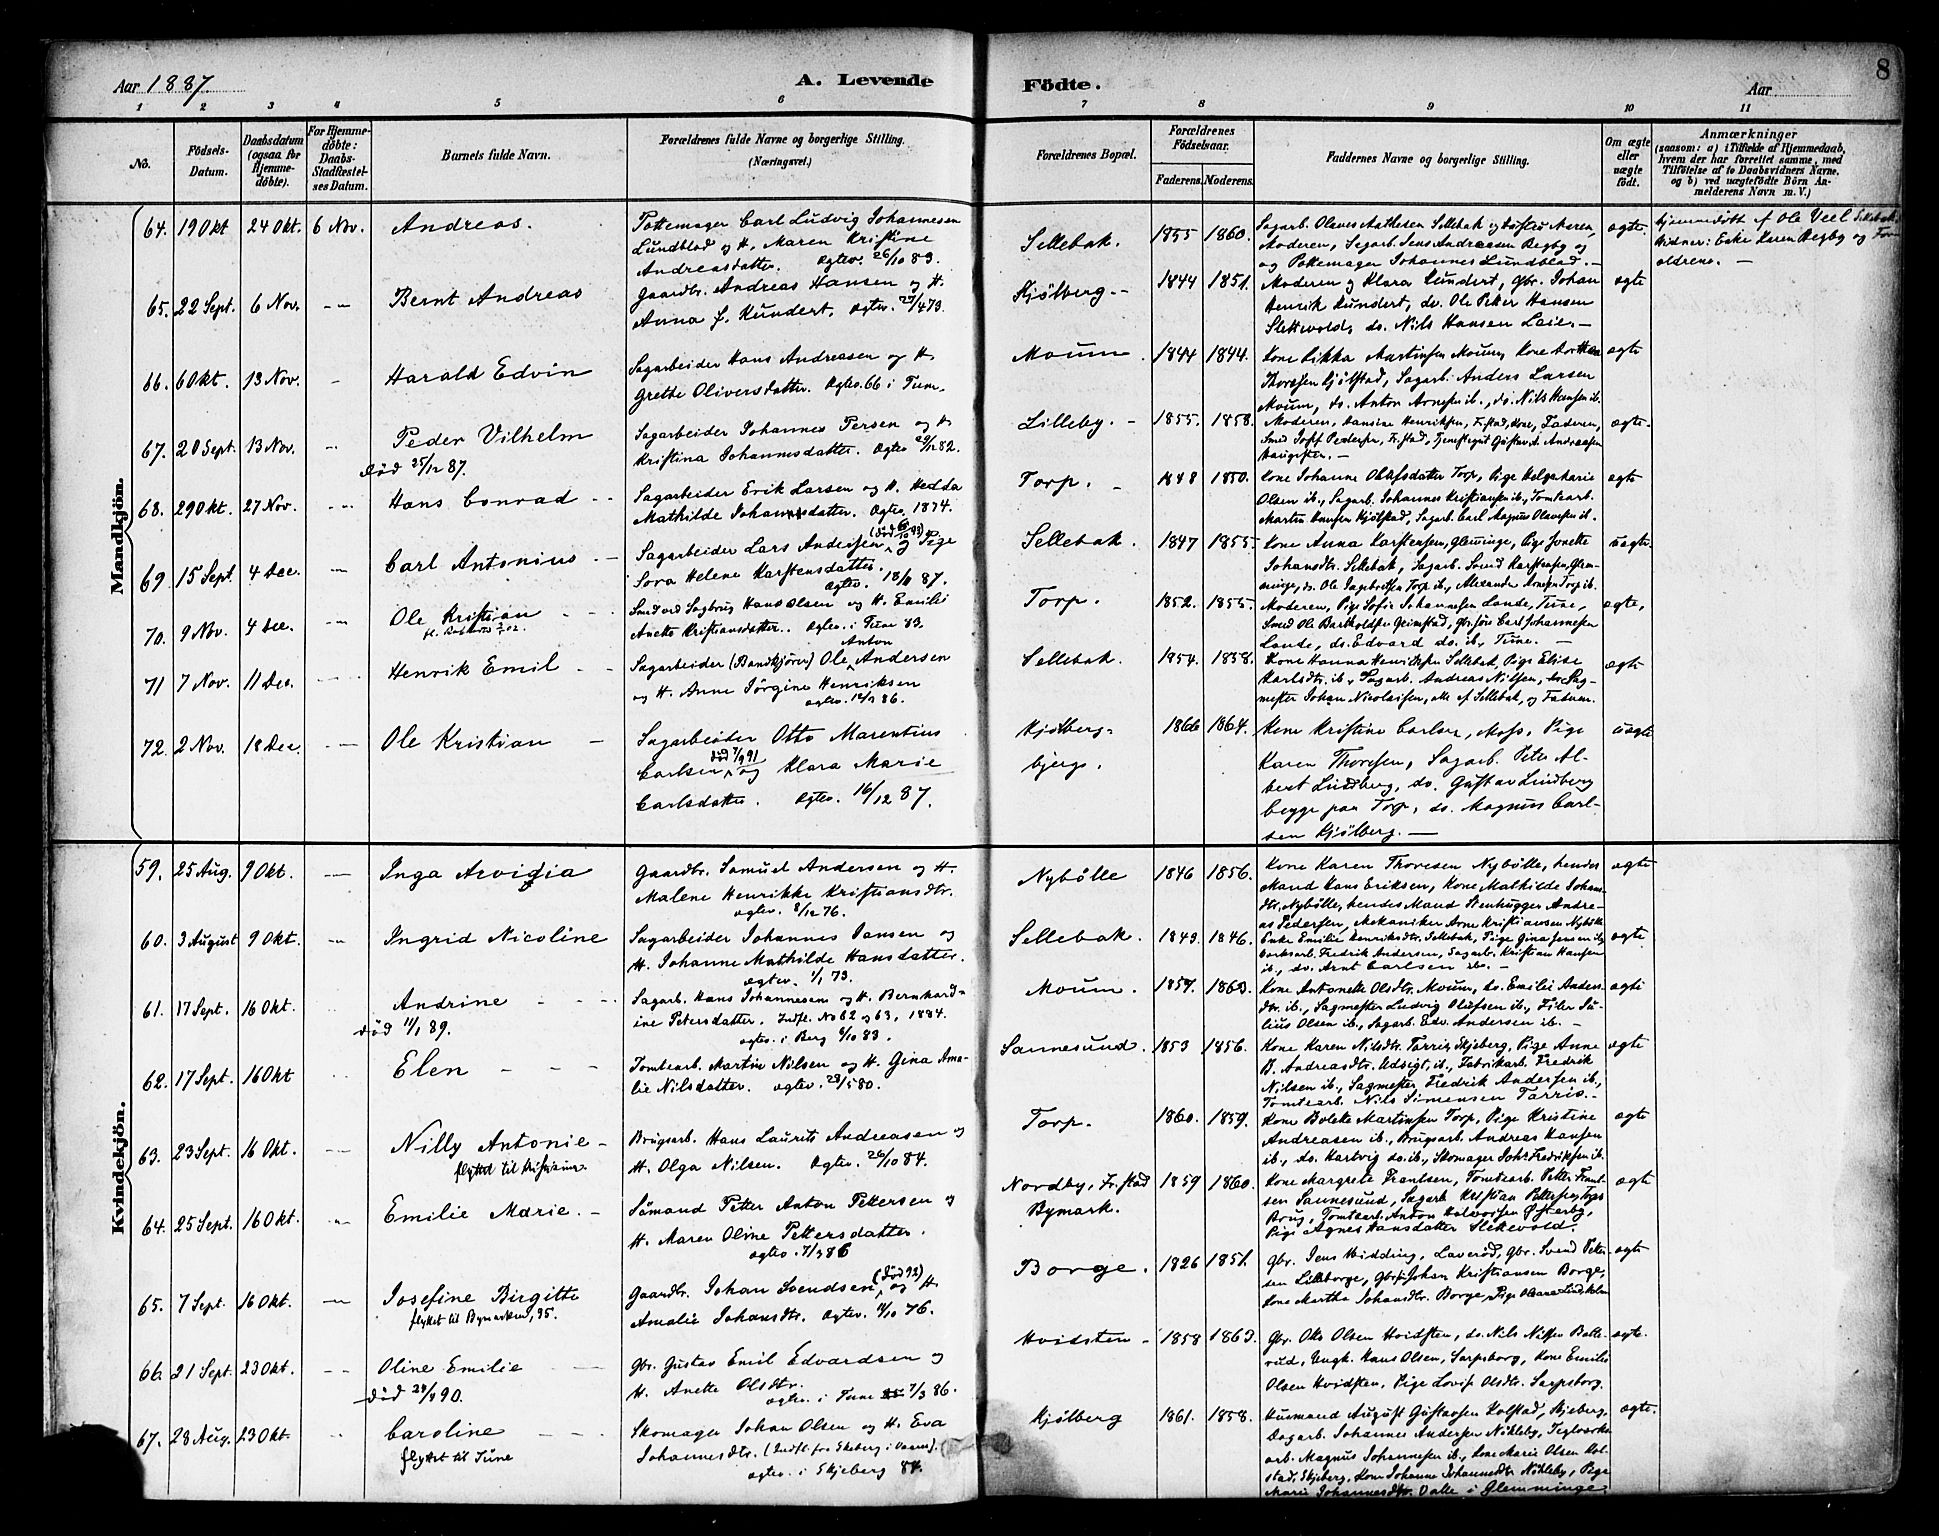 Aar 1887.
A. Levende
Födte.
Aar
8
1 2 3 4 5 6 7 8 9 10 11
No.
Födsels-Datum.
Daabsdatum (ogsaa for Hjemme-döbte).
For Hjemme-döbte: Daabs-Stadfæstel-ses Datum.
Barnets fulde Navn.
Forældrenes fulde Navne og borgerlige Stilling. (Næringsvei.)
Forældrenes Bopæl.
Forældrenes Födselsaar.
Faderens. Moderens.
Faddernes Navne og borgerlige Stilling.
Om ægte eller uægte födt.
Anmærkninger
(saasom: a) i Tilfælde af Hjemmedaab, hvem der har forrettet samme, med Tilföielse af to Daabsvidners Navne, og b) ved uægtefödte Börn An-melderens Navn m. V.)
Mandkjön.
64. 19 Okt 24 Okt. 6 Nov. Andreas.
Pottemager Carl Ludvig Johannesen
Lundblad og H. Maren Kristine
Andreasdatter. Ægtev. 26/10 83.
Sellebak. 1855 1860.
og Pottemager Johannes Lundblad. —
ægte.
Hjemmedøbt af Ole Veel Sellebak.
Vidner: Enke Karen Begby og For-
ældrene. —
65. 22 Sept. 6 Nov. Bernt Andreas
Gaardbr. Andreas Hansen og H.
Anna f. Kundert. Ægtev. 473.
Kjølberg. 1844 1851.
Moderen og Klara Kundert, Gbr. Johan
Henrik Kundert, do. Ole Peter Hansen
Slettevold, do. Nils Hansen Leie. —
ægte
66. 6 Okt. 13 Nov. Harald Edvin
Sagarbeider Hans Andreasen og H.
Grethe Oliversdatter. Ægtev. 66 i Tune.
Moum. 1844 1844.
Thoresen Kjølstad, Sagarb. Anders Larsen
Moum, do. Anton Arnesen ib., do. Nils Hansen ib.
ægte
67. 20 Sept. 13 Nov. Peder Vilhelm
Død 25/12 87.
Sagarbeider Johannes Persen og H
Kristina Johannesdatter. Ægtev. 29/12 82.
Lilleby. 1855. 1858.
ægte.
68. 29 Okt. 27 Nov. Hans Conrad
Sagarbeider Erik Larsen og H. Hedda
Mathilde Johannesdatter. Ægtev. 1874.
Torp. 1848 1850.
Kone Johanne Olafsdatter Torp, Pige Helga Karie
Olsen ib., Sagarb. Johannes Kristiansen ib., Tomtearb.
Martin Hansen Kjølstad, Sagarb. Carl Magnus Olavesen ib.
ægte
69. 15 Sept. 4 Dec. Carl Antonius
Sagarbeider Lars Andersen, og Pige
Sora Helene Karstensdatter.
Ægtev. 87.
Sellebak. 1847 1855.
Kone Anna Karstensen, Glemminge, Pige Jonette
Johansdtr. Sellebak, Sagarb. Svend Karstensen, Glem-
minge, do. Ole Ingebretsen Torp ib., Alexander Arnesen Torp ib.
uægte.
70. 9 Nov. 4 Dec. Ole Kristian
Smed ved Sagbrug Hans Olsen og H. Emilie
Anette Kristiansdatter. Ægtev. i Tune 83.
Torp. 1852. 1855.
Moderen, Pige Sofie Johannesen Lande, Tune,
Smed Ole Bartholdsen Greimstad, Gbr. søn Carl Johannesen
Lande, do. Edvard do. ib., Tune. —
ægte.
71 7 Nov. 11 Dec. Henrik Emil
Sagarbeider (Bandkjører) Ole Anton Andersen
og H. Anne Jørgine Henriksen
Ægtev. 86.
Sellebak. 1854. 1858.
Kone Hanna Henriksen Sellebak, Pige Elise
Karlsdtr. ib., Sagarb. Andreas Nilsen, do. Sag-
mester Johan Nicolaisen, alle af Sellebak, og Faderen
ægte.
72. 2 Nov. 18 Dec. Ole Kristian
Sagarbeider Otto Marentius
Carlsen, og Klara Marie
død 7/9 91
Carlsdatter. Ægtev. 16/12 87.
Kjølberg-
bjerg. 1866 1864.
Kone Kristine Carlsen, Moss, Pige
Karen Thoresen, Sagarb. Peter Al-
bert Lindberg, do. Gustav Lindberg
begge paa Torp, do. Magnus Carl-
sen Kjølberg. —
uægte
Kvindekjön.
59. 25 Aug. 9 Okt. Inga Arvigia
Gaardbr. Samuel Andersen og H.
Malene Henrikke Kristiansdtr.
Ægtev. 8/12 76.
Nybølle 1846 1856.
Kone Karen Thoresen Nybølle, hendes
Mand Hans Eriksen, Kone Mathilde Johans-
dtr. Nybølle, hendes Mand Stenhugger Andre-
as Pedersen, Mekaniker Arne Kristiansen Nybølle
ægte
60. 3 August 9 Okt. Ingrid Nicoline
Sagarbeider Johannes Jansen og
H. Johanne Mathilde Hansdatter.
Ægtev. 1/1 73.
Sellebak. 1843. 1846.
Enke Emilie Henriksdtr. Sellebak, Pige Gina Jensen ib.,
Værksarb. Fredrik Andersen, Sagarb. Kristian Hansen
ib., do. Arnt Carlsen ib. —
ægte.
61. 17 Sept. 16 Okt. Andrine
død 11/1 89.
Sagarb. Hans Johannesen og H. Bernhard-
ine Petersdatter. Indfl. No 62 og 63, 1884.
Ægtev. i Berg 6/10 83.
Moum. 1857. 1863.
Kone Antonette Olsdtr. Moum, do. Emilie Anders-
dtr. ib., Sagmester Ludvig Olafsen ib., Filer Ju-
lius Olsen ib., Sagarb. Edv. Andersen ib. —
ægte
62. 17 Sept. 16 Okt Elen
Tomtearb. Martin Nilsen og H. Gina Ama-
lie Nilsdatter. Ægtev. 28/5 80.
Sannesund. 1853 1856.
Kone Karen Nilsdtr. Tarris, Skjeberg, Pige Anne
B. Andreasdtr. Udsigt, ib., Fabrikarb. Fredrik
Nilsen ib., Sagmester Fredrik Andersen ib.,
Tomtearb. Nils Simensen Tarris. —
ægte
63. 23 Sept. 16 Okt. Nilly Antonie
flyttet til Kristiania.
Brugsarb. Hans Laurits Andreasen og
H. Olga Nilsen. Ægtev. 26/10 84.
Torp. 1860. 1859.
Kone Bolette Martinsen Torp, Pige Kristine
Andreasen ib., Brugsarb. Andreas Hansen
ib., do. Hartvig do. ib., Skomager Johs. Fredriksen ib.
ægte
64. 25 Sept. 16 Okt. Emilie Marie.
Sømand Petter Anton Pettersen og
H. Maren Oline Pettersdatter.
Ægtev. 7/3 86
Nordby, Fr.stad
Bymark. 1859 1860.
Kone Margrete Frantsen, Tomtearb. Petter Frant-
sen Sannesund, Sagarb. Kristian Pettersen Torps
Brug, Tomtearb. Anton Halvorsen Østerby,
Pige Agnes Hansdatter Slettevold.
ægte
65. 7 Sept. 16 Okt. Josefine Birgitte
flyttet til Bymarken, 95.
Gaardbr. Johan Svendsen, (død 92) og H.
Amalie Johansdtr. Ægtev. 11/10 76.
Borge. 1826 1851.
Gbr. Jens Hidding, Laverød, Gbr. Svend Peter-
sen Lilleborge, Gbr. Johan Kristiansen Borge,
Kone Martha Johansdtr. Borge, Pige
ægte
66. 21 Sept. 23 Okt. Oline Emilie
Død 90.
Gbr. Gustav Emil Edvardsen og
H. Anette Olsdtr.
Ægtev. i Tune 7/3 86.
Hvidsten 1858 1863.
Gbr. Otto Olsen Hvidsten, do. Nils Nilsen Balle-
rud, Ungk. Hans Olsen, Sarpsborg, Kone Emilie
Olsen Hvidsten, Pige Lovise Olsdtr. Sarpsborg.
ægte.
67. 28 Aug. 23 Okt Caroline
flyttet til Tune
Skomager Johan Olsen og H. Eva
Johannesdtr. (Indfl. fra Skeberg i Varm).
Ægtev. i Skjeberg 84.
Kjølberg 1861. 1858.
Husmand August Gustavsen Kolstad, Skjeberg,
Dagarb. Johannes Andersen Nokleby, Teglværks-
arb. Magnus Johannesen ib., Kone Marie Olsen Kol-
stad, Skjeberg, Kone Johanne Johannesdtr Nokleby, Pige
Marie Johannesdtr. Valle i Glemminge
ægte.